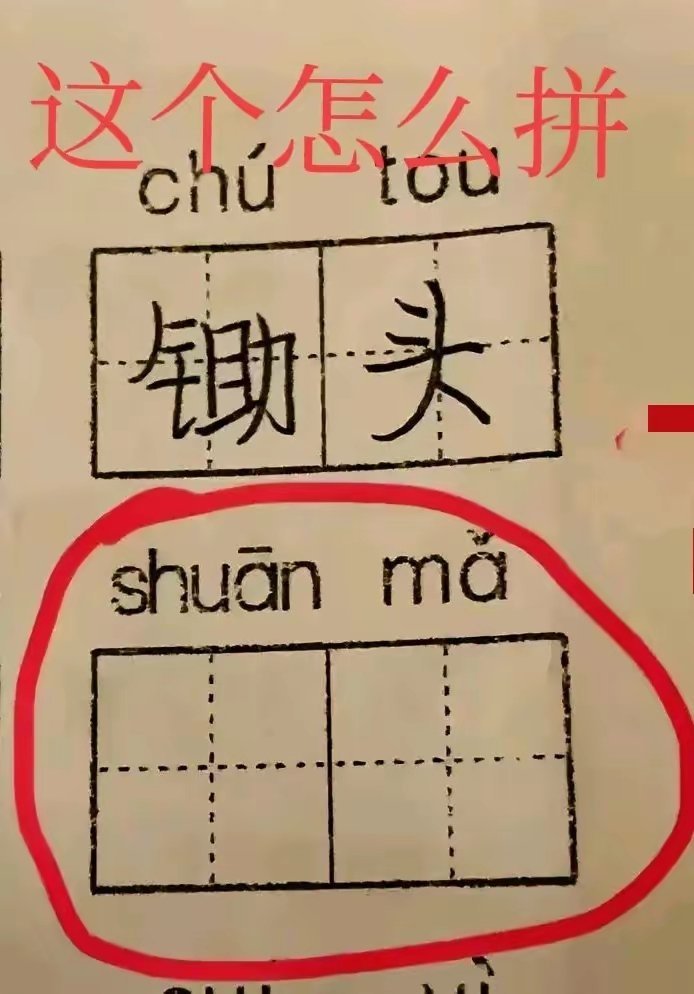 这个怎么拼
chú tou
锄头
shuān mǎ